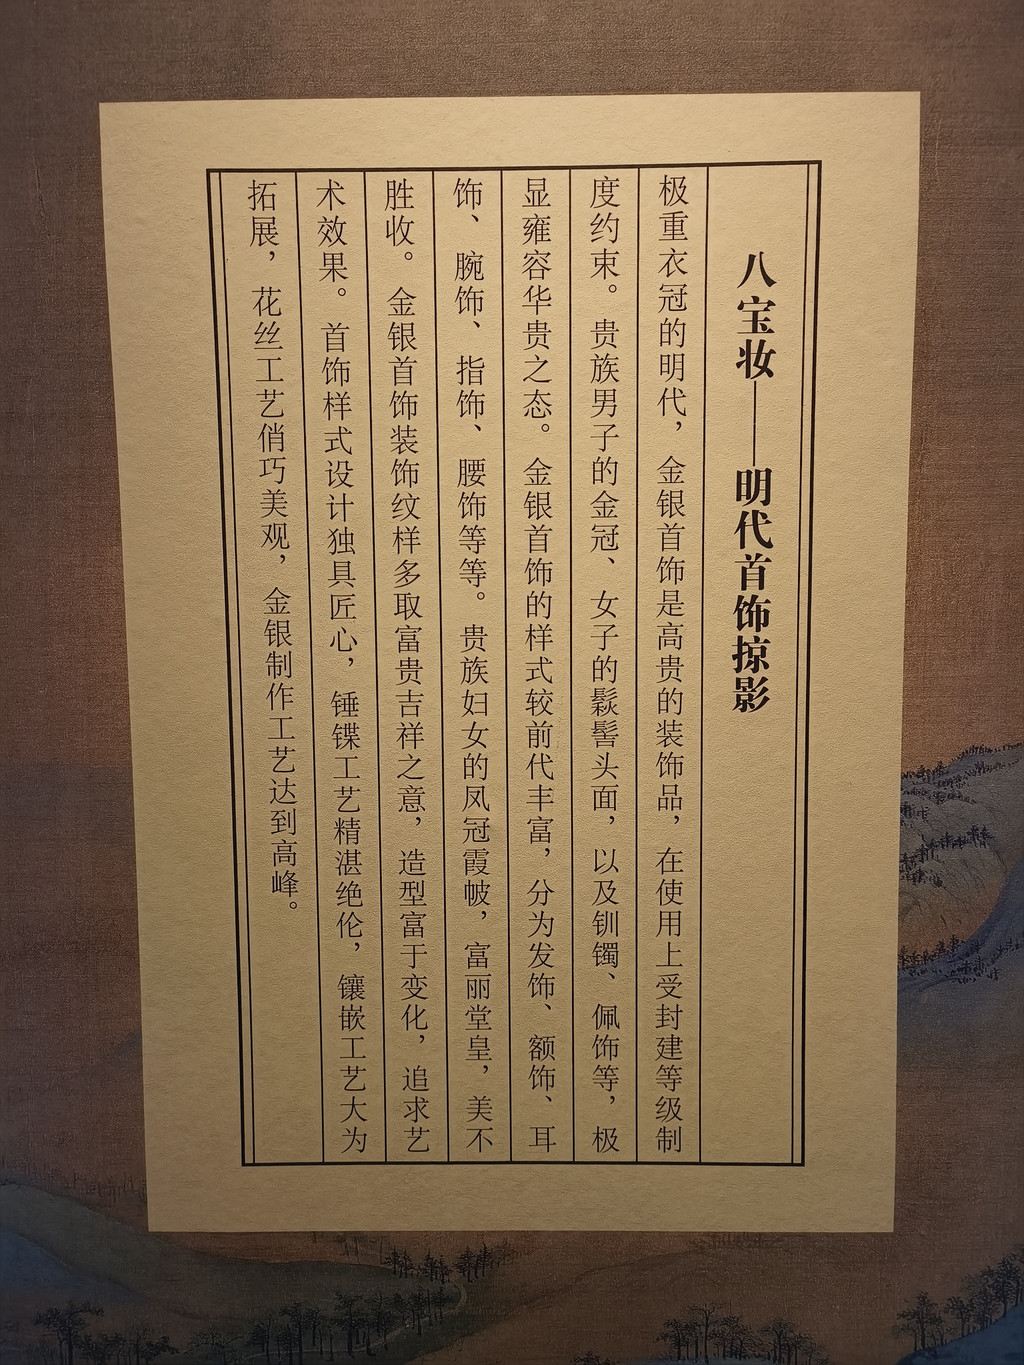 八宝妆——明代首饰掠影
极重衣冠的明代，金银首饰是高贵的装饰品，在使用上受封建等级制
度约束。贵族男子的金冠、女子的鬏髻头面，以及钏镯、佩饰等，极
显雍容华贵之态。金银首饰的样式较前代丰富，分为发饰、额饰、耳
饰、腕饰、指饰、腰饰等等。贵族妇女的凤冠霞帔，富丽堂皇，美不
胜收。金银首饰装饰纹样多取富贵吉祥之意，造型富于变化，追求艺
术效果。首饰样式设计独具匠心，锤鍱工艺精湛绝伦，镶嵌工艺大为
拓展，花丝工艺俏巧美观，金银制作工艺达到高峰。